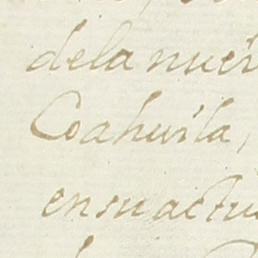 dela nuev
Coahuila,
ensu actu